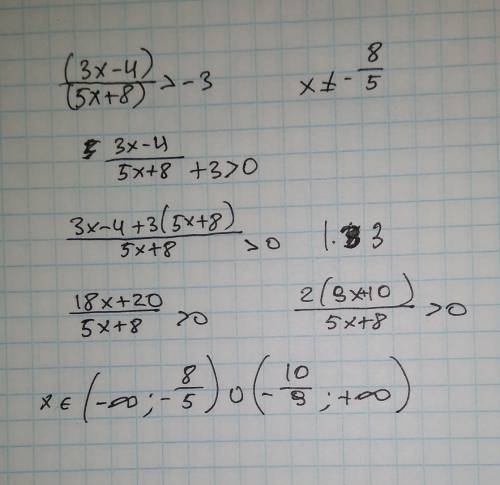 (3x-4)/(5x+8) > -3 x ≠ -8/5
(3x-4)/(5x+8) + 3 > 0
(3x-4+3(5x+8))/(5x+8) > 0 |. 3
(18x+20)/(5x+8) > 0 2(9x+10)/(5x+8) > 0
x ∈ (-∞; -8/5) ∪ (-10/9; +∞)